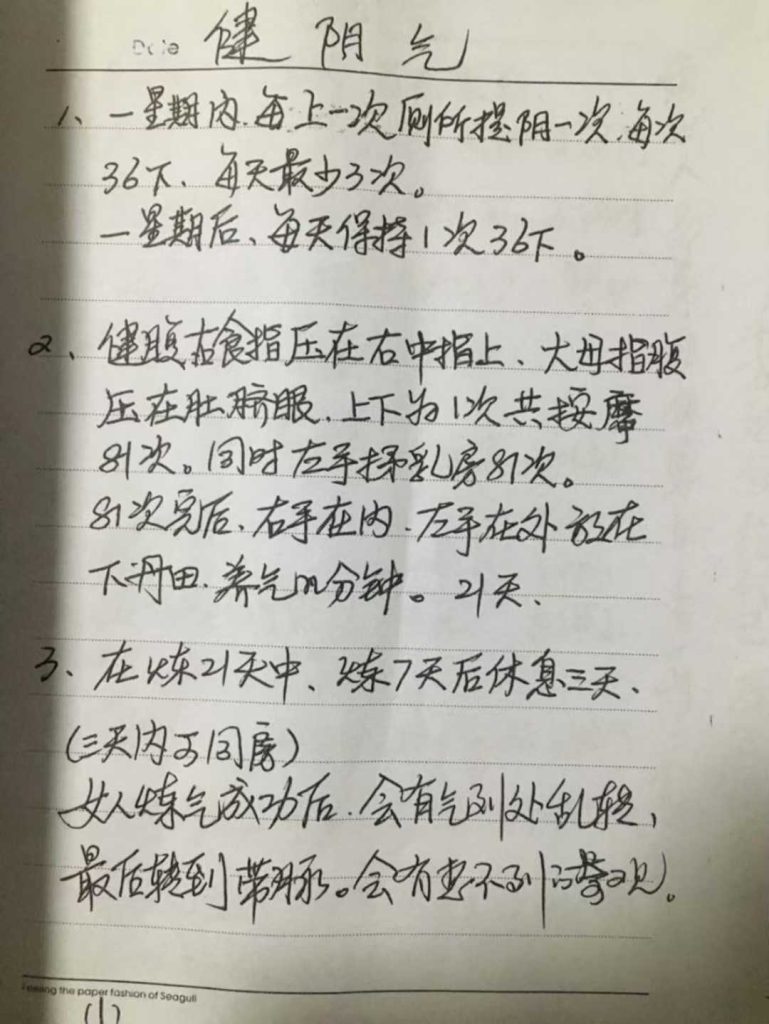 Date 健阴气
1、一星期内.每上一次厕所提阴一次.每次
36下、每天最少3次。
一星期后、每天保持1次36下。
2、健腹右食指压在右中指上、大母指腹
压在肚脐眼.上下为1次共按摩
81次。同时左手揉乳房81次。
81次完后.右手在内.左手在外放在
下丹田.养气 分钟。21天、
3、在炼21天中、炼7天后休息三天、
(三天内可同房)
女人炼气成功后.会有气到处乱转,
最后转到带脉。会有想不到的 观。
the paper fashion of Seagull
(1)